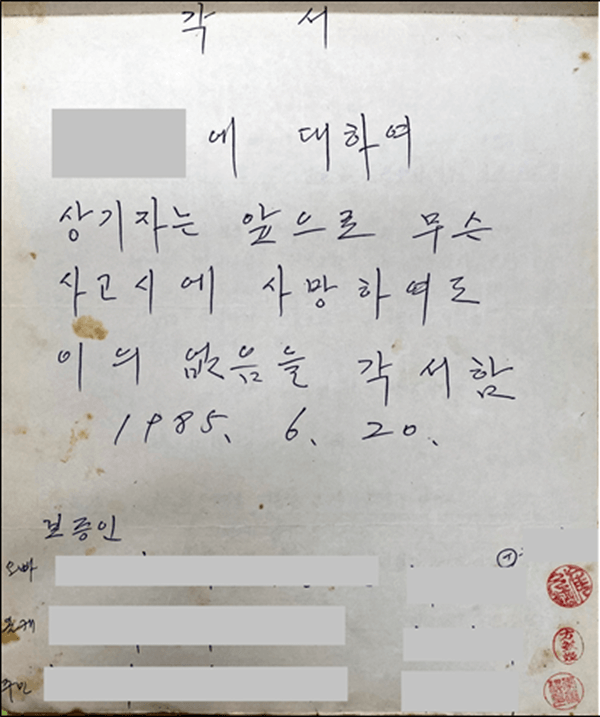 각 서
에 대하여
상기자는 앞으로 무슨
사고시에 사망하여도
이의 없음을 각서함
1985. 6. 20.
보증인
오빠